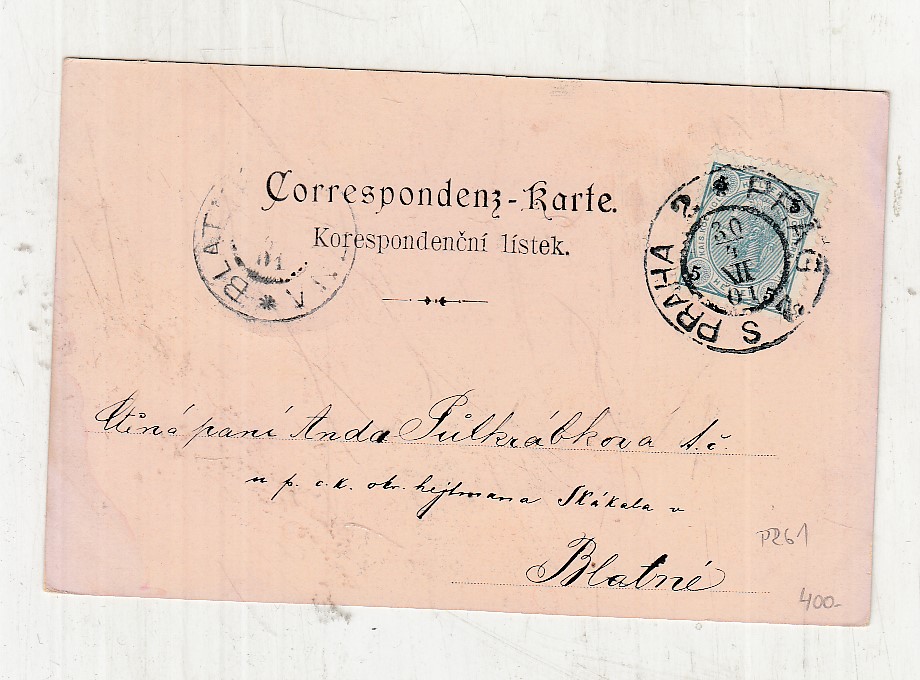 Correspondenz-Karte.
Korespondenční lístek.
BLAT
NA
*
01
PRAG
* 2 PRAHA S
30
4
VII
01
5
KAIS
Ctěná paní Anda Půlkrábková t.č.
u p. c.k. okr. hejtmana Skákala v
Blatné
PR61
400-